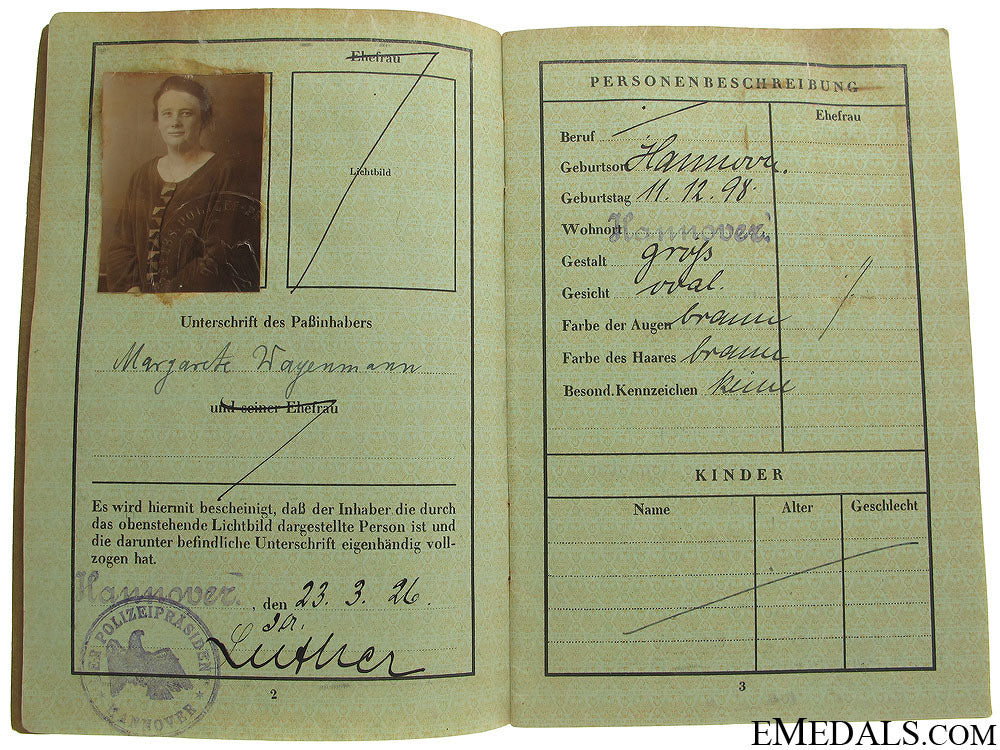 Ehefrau
Lichtbild
Unterschrift des Paßinhabers
Margarete Wagenmann
und seiner Ehefrau
Es wird hiermit bescheinigt, daß der Inhaber die durch
das obenstehende Lichtbild dargestellte Person ist und
die darunter befindliche Unterschrift eigenhändig voll-
zogen hat.
Hannover. , den 23. 3. 26.
Luther
DER POLIZEIPRÄSIDENT
* HANNOVER *
2
PERSONENBESCHREIBUNG
Ehefrau
Beruf
Geburtsort Hannover.
Geburtstag 11. 12. 98.
Wohnort Hannover.
Gestalt groß
Gesicht oval.
Farbe der Augen braun
Farbe des Haares braun
Besond. Kennzeichen keine
KINDER
Name Alter Geschlecht
3
EMEDALS.COM